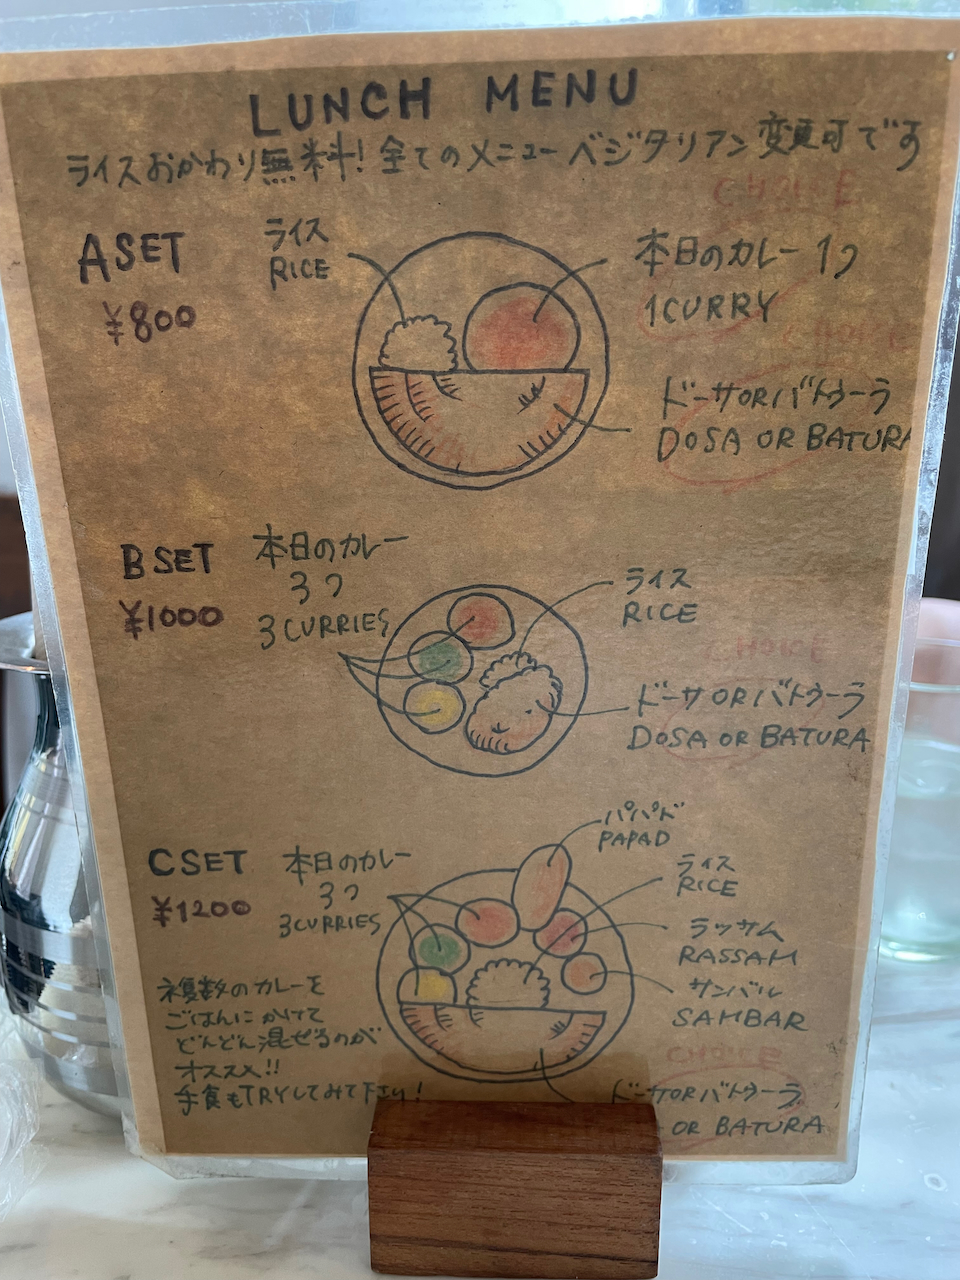 LUNCH MENU
ライスおかわり無料! 全てのメニューベジタリアン変更可です
CHOICE
A SET
¥800
ライス
RICE
本日のカレー 1つ
1 CURRY
CHOICE
ドーサ OR バトゥーラ
DOSA OR BATURA
B SET
¥1000
本日のカレー
3つ
3 CURRIES
ライス
RICE
CHOICE
ドーサ OR バトゥーラ
DOSA OR BATURA
C SET
¥1200
本日のカレー
3つ
3 CURRIES
パパド
PAPAD
ライス
RICE
ラッサム
RASSAM
サンバル
SAMBAR
CHOICE
ドーサ OR バトゥーラ
OR BATURA
複数のカレーを
ごはんにかけて
どんどん混ぜるのが
オススメ!!
手食もTRYしてみて下さい!